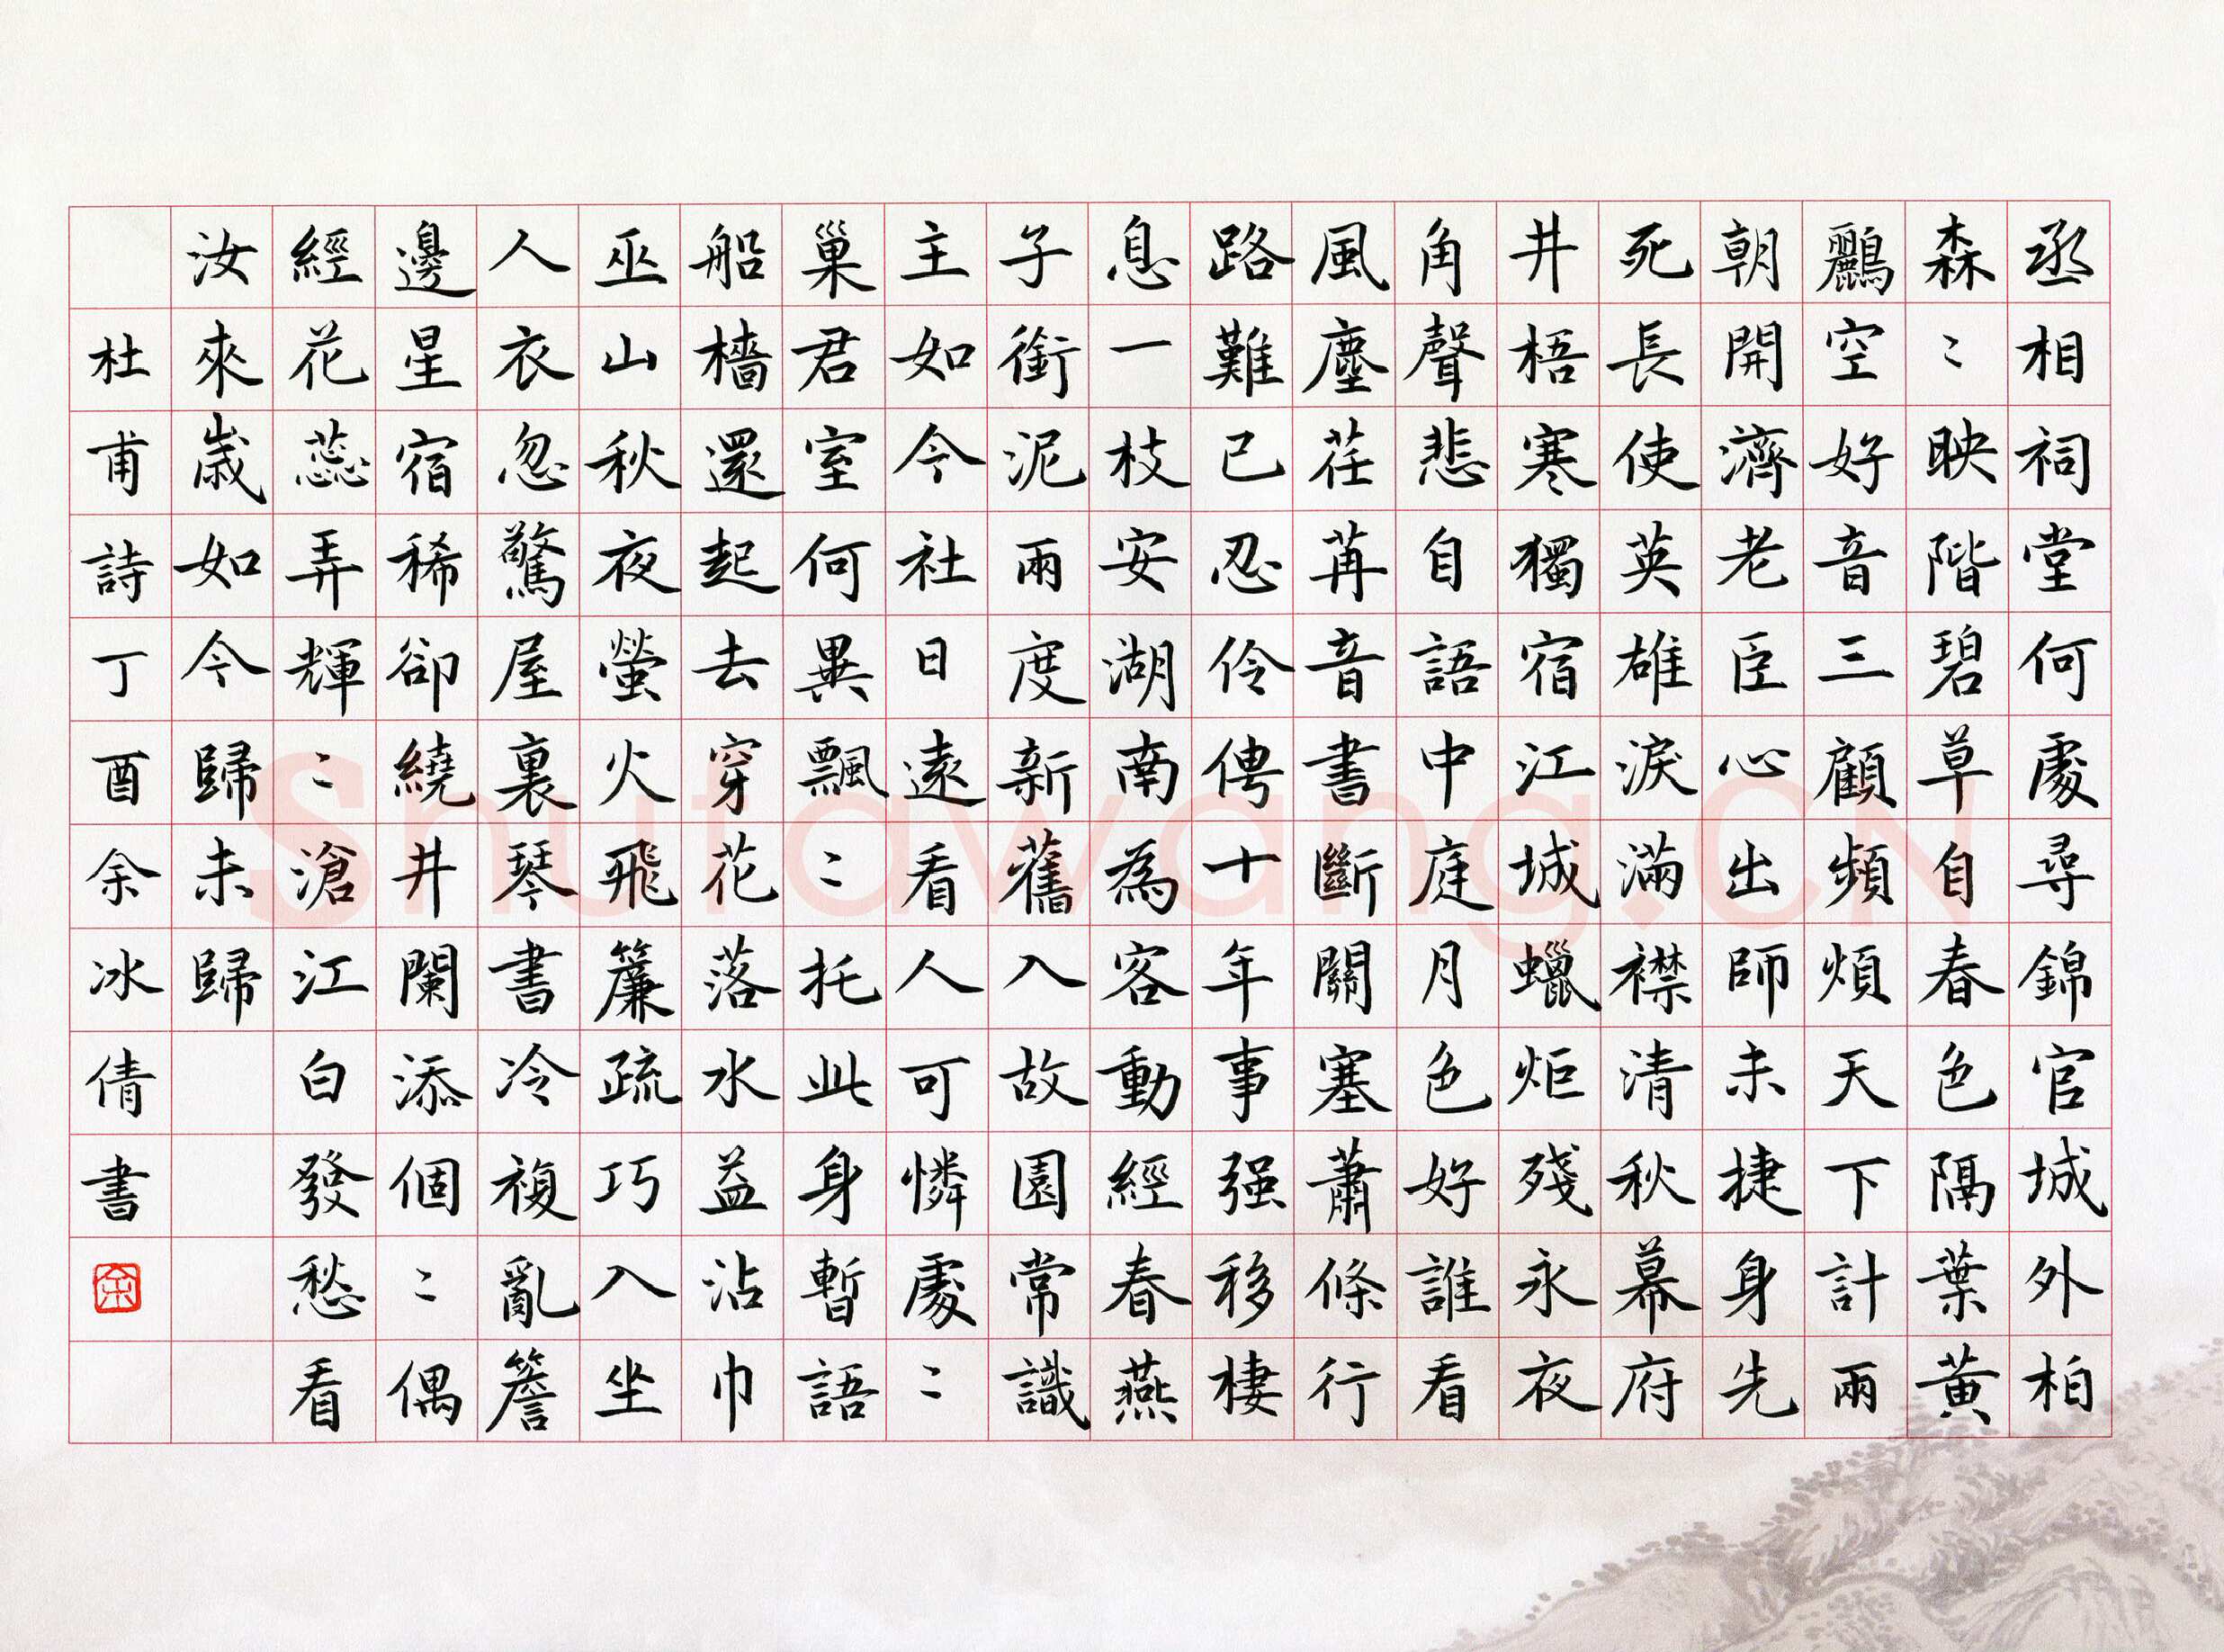 丞相祠堂何處尋錦官城外柏
森〻映階碧草自春色隔葉黃
鸝空好音三顧頻煩天下計兩
朝開濟老臣心出師未捷身先
死長使英雄淚滿襟清秋幕府
井梧寒獨宿江城蠟炬殘永夜
角聲悲自語中庭月色好誰看
風塵荏苒音書斷關塞蕭條行
路難已忍伶俜十年事强移棲
息一枝安湖南為客動經春燕
子銜泥兩度新舊入故園常識
主如今社日遠看人可憐處〻
巢君室何異飄〻托此身暫語
船檣還起去穿花落水益沾巾
巫山秋夜螢火飛簾疏巧入坐
人衣忽驚屋裏琴書冷複亂簷
邊星宿稀卻繞井闌添個〻偶
經花蕊弄輝〻滄江白發愁看
汝來歲如今歸未歸
杜甫詩丁酉余冰倩書
余
Shufawang.CN